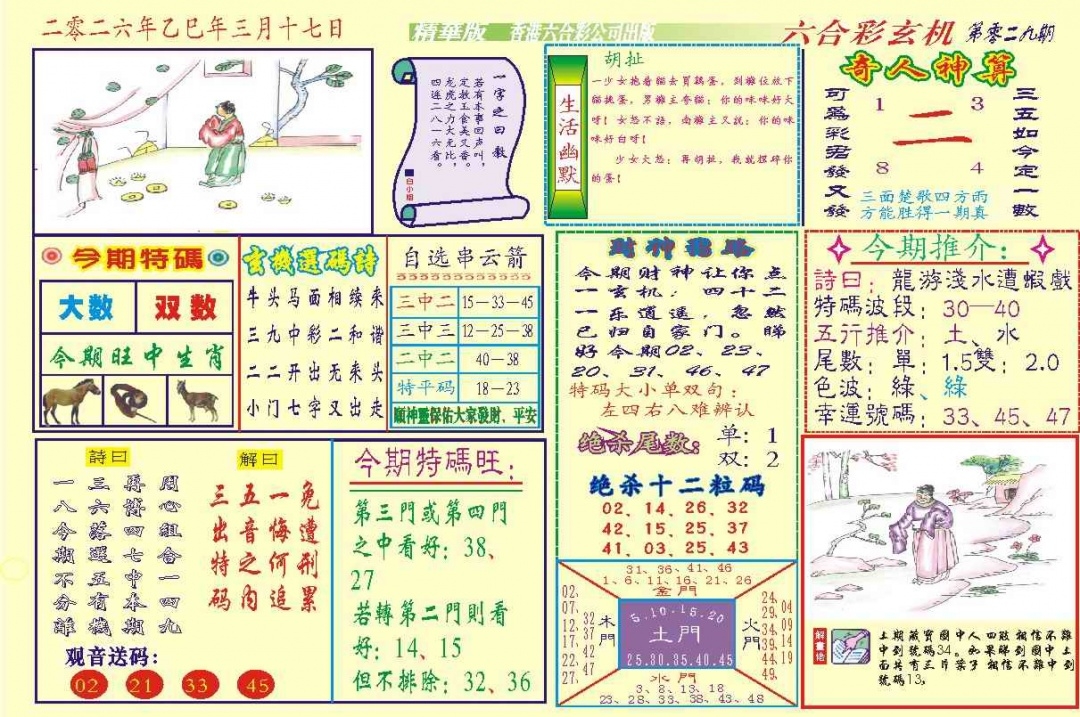 二零二六年乙巳年三月十七日
精華版 香港六合彩公司出版
六合彩玄机 第零二九期
一字之曰:教
若有本事回声叫,
定教玉食美又香。
龙虎之力大无比,
四连二八一六看。
白小姐
生活幽默
胡扯
一少女抱着貓去買鷄蛋,到摊位放下
貓挑蛋,男摊主夸貓:你的咪咪好大
呀!女怒不語,南摊主又説:你的咪
咪好白呀!
少女大怒:再胡扯,我就捏碎你
的蛋!
奇人神算
可爲彩君發又發
1 3
二
8 4
三面楚歌四方雨
方能胜得一期真
三五如今定一數
今期特碼
大数 双数
今期旺中生肖
玄機選碼詩
牛头马面相续来
三九中彩二和谐
二二开出无来头
小门七字又出走
自选串云箭
三中二 15—33—45
三中三 12—25—38
二中二 40—38
特平码 18—23
願神靈保佑大家發財、平安
財神
今期财神让你点
一玄机:四十二
一乐逍遥,忽然
已归自家门。睇
好今期02、23、
20、31、46、47
特码大小单双句:
左四右八难辨认
绝杀尾数:
单:1
双:2
绝杀十二粒码
02、14、26、32
42、15、25、37
41、03、25、43
今期推介:
詩曰:龍游淺水遭蝦戲
特碼波段:30—40
五行推介:土、水
尾數:單:1.5雙:2.0
色波:綠、綠
幸運號碼:33、45、47
詩曰
周心組合一四九
再博四七中本期
三六落選五有機
一八今期不分離
解曰
免遭刑累
一悔何追
五音之内
三出特码
观音送码:
02 21 33 45
今期特碼旺:
第三門或第四門
之中看好:38、
27
若轉第二門則看
好:14、15
但不排除:32、36
31、36、41、46
1、6、11、16、21、26
金門
02、07、12、17、22、27、
32、37、42、47
木門
5.10.15.20
土門
25.30.35.40.45
火門
24、29、34、39、44、49、
04、09、14、19
水門
3、8、13、18
23、28、33、38、43、48
解畫佬
上期藏寶圖中人四肢相信不難
中到號碼34。如果睇到圖中上
面共有三片葉子相信不難中到
號碼13。